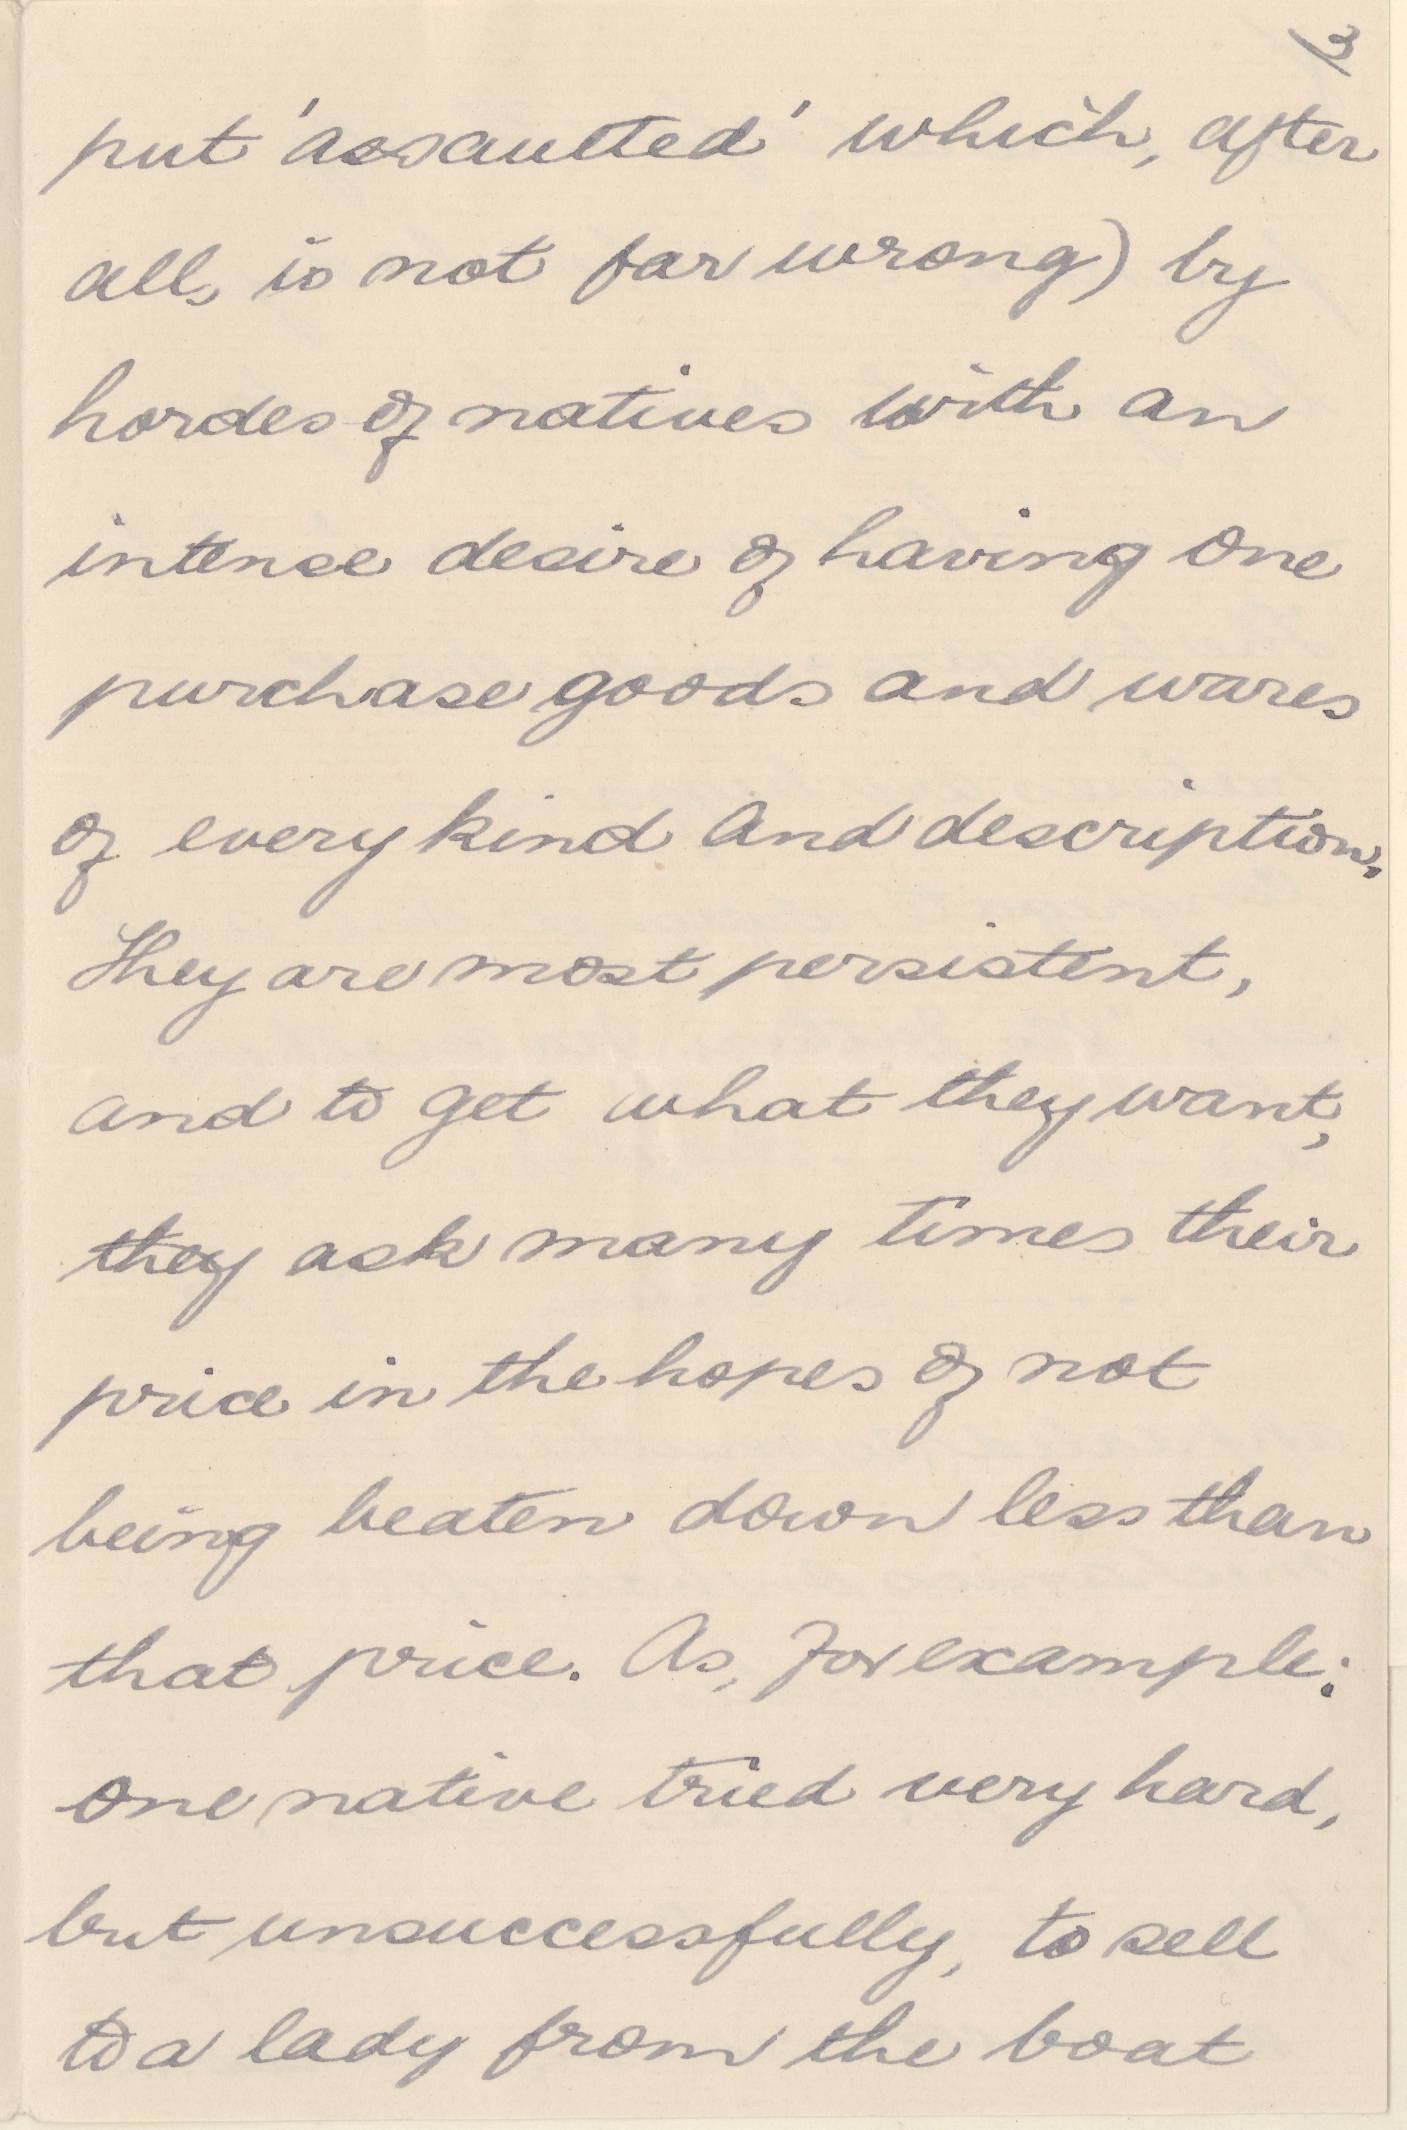 3
put 'assaulted' which, after
all, is not far wrong) by
hordes of natives with an
intense desire of having one
purchase goods and wares
of every kind and description.
They are most persistent,
and to get what they want,
they ask many times their
price in the hopes of not
being beaten down less than
that price. As, for example:
one native tried very hard,
but unsuccessfully, to sell
to a lady from the boat